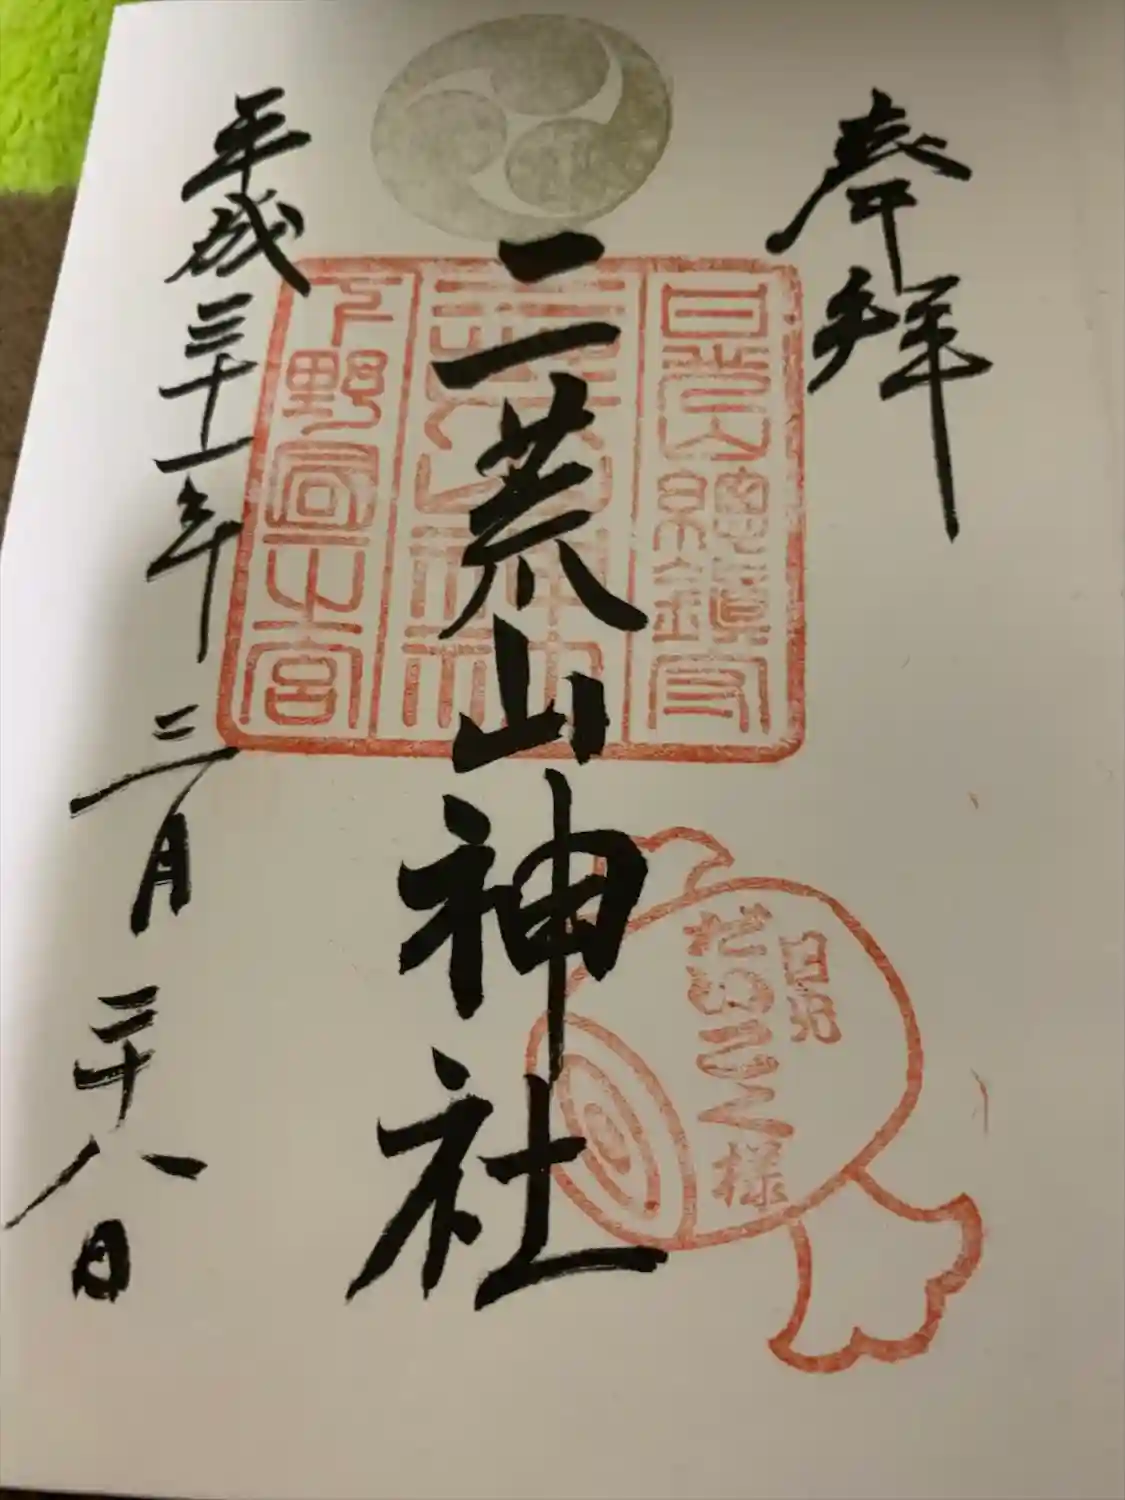 奉拝
日光山總鎮守
二荒山神社
下野國一之宮
平成三十一年三月二十八日
日光
だいこく様